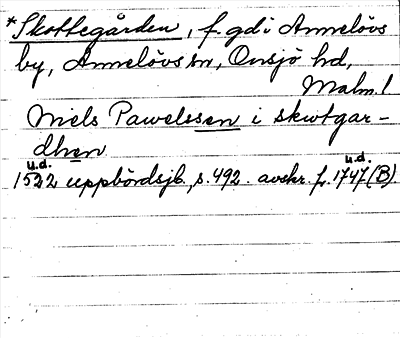 *Skottegården, f. gd i Annelövs
by, Annelövs sn, Onsjö hd,
Malm. l
Niels Pawelssen i skwtgar-
dhen
u.d. u.d.
1522 uppbördsjb., s. 492. avskr. f. 1747 (B).